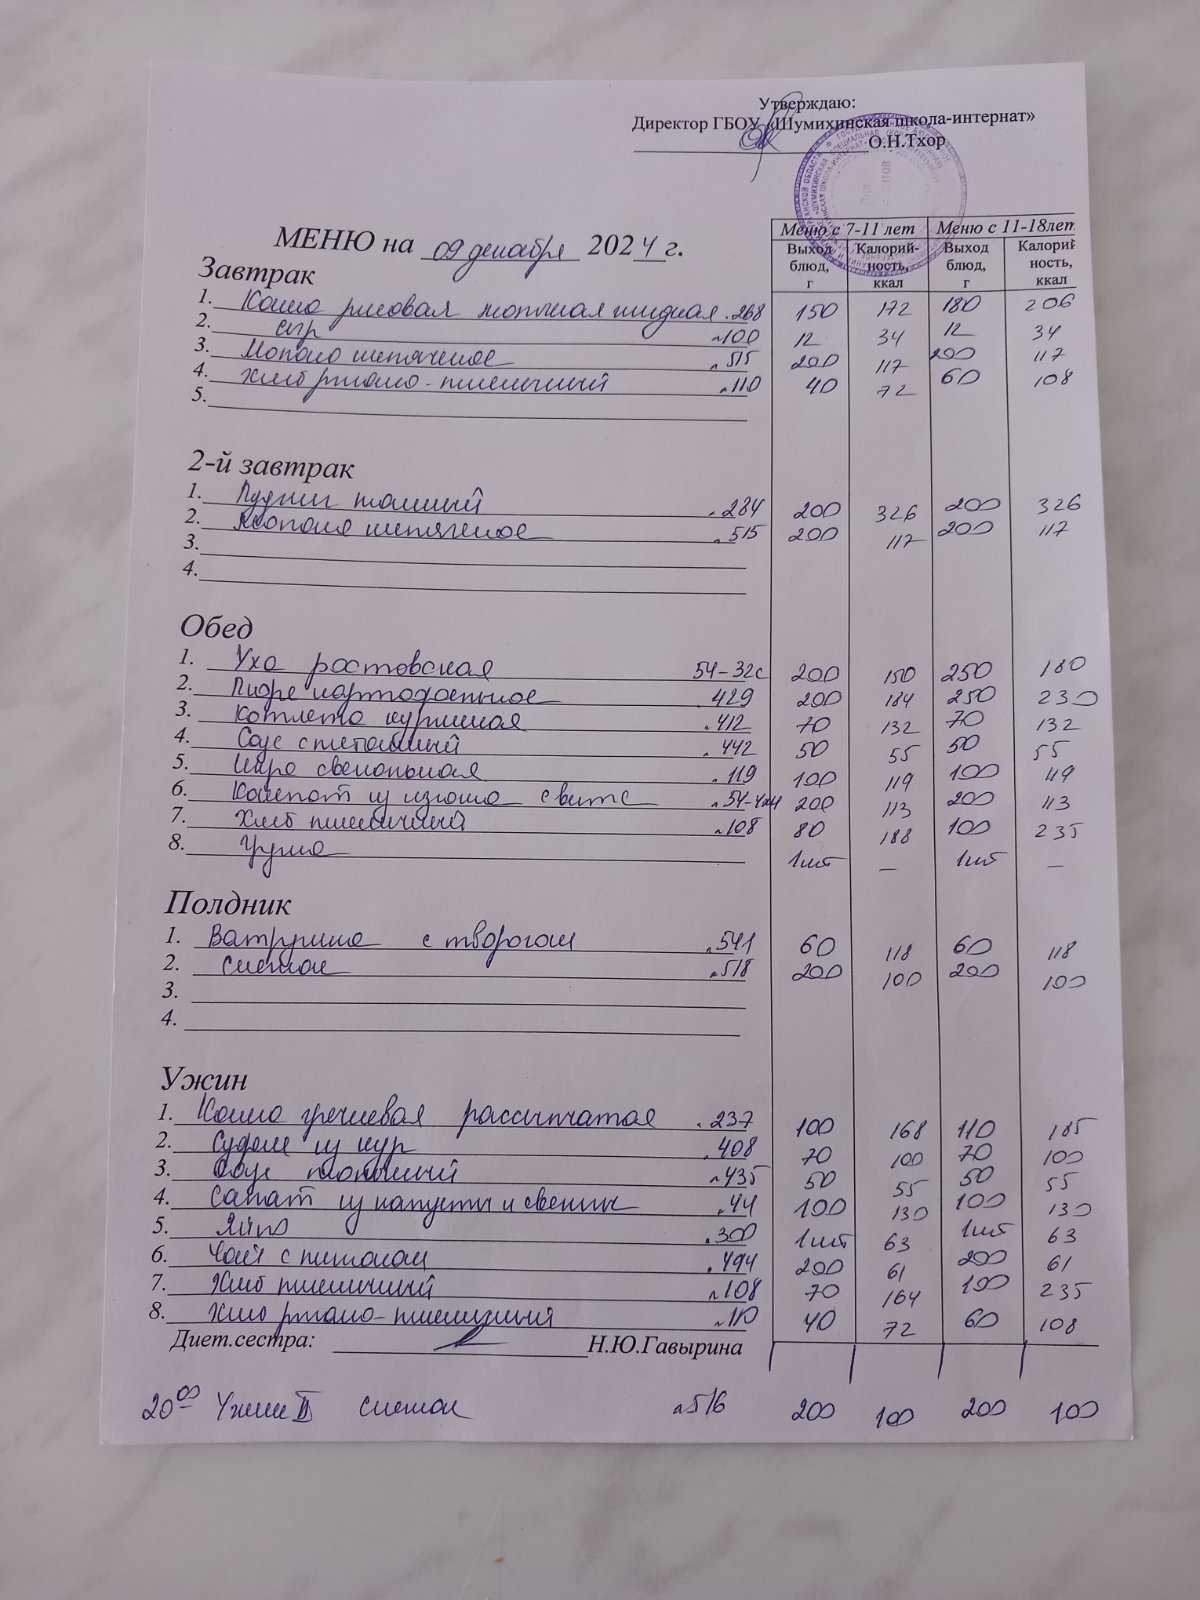 Утверждаю:
Директор ГБОУ «Шумихинская школа-интернат»
О.Н.Тхор
МЕНЮ на 09 декабря 2024 г.
Меню с 7-11 лет Меню с 11-18лет
Выход блюд, г Калорий-ность, ккал Выход блюд, г Калорий ность, ккал
Завтрак
1. Каша рисовая молочная жидкая .268 150 172 180 206
2. сыр №100 12 34 12 34
3. Молоко кипяченое .515 200 117 200 117
4. Хлеб ржано-пшеничный .110 40 72 60 108
5.
2-й завтрак
1. Пудинг .284 200 326 200 326
2. Молоко кипяченое .515 200 117 200 117
3.
4.
Обед
1. Уха ростовская 54-32с 200 150 250 180
2. Пюре картофельное .429 200 184 250 230
3. Котлета куриная .412 70 132 70 132
4. Соус сметанный .442 50 55 50 55
5. Икра свекольная .119 100 119 100 119
6. Компот из изюма с вит С 200 113 200 113
7. Хлеб пшеничный №108 80 188 100 235
8. Груша 1шт – 1шт –
Полдник
1. Ватрушка с творогом .541 60 118 60 118
2. Снежок №518 200 100 200 100
3.
4.
Ужин
1. Каша гречневая рассыпчатая .237 100 168 110 185
2. Суфле из кур .408 70 100 70 100
3. Соус молочный №435 50 55 50 55
4. Салат из капусты и свеклы .44 100 130 100 130
5. Яйцо .300 1шт 63 1шт 63
6. Чай с лимоном .494 200 61 200 61
7. Хлеб пшеничный №108 70 164 100 235
8. Хлеб ржано-пшеничный №110 40 72 60 108
Диет.сестра: Н.Ю.Гавырина
20⁰⁰ Ужин II снежок №516 200 100 200 100